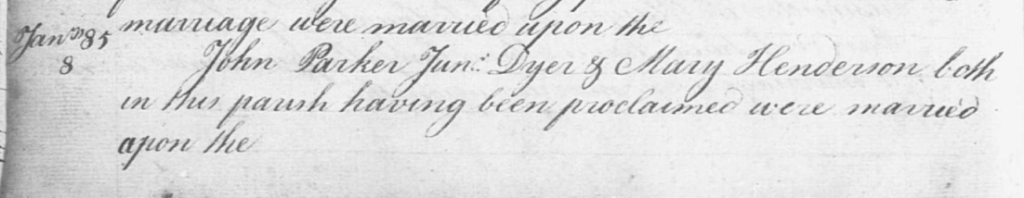 marriage were married upon the
Jan.ry 85
8 John Parker Jun.r Dyer & Mary Henderson both
in this parish having been proclaimed were married
upon the